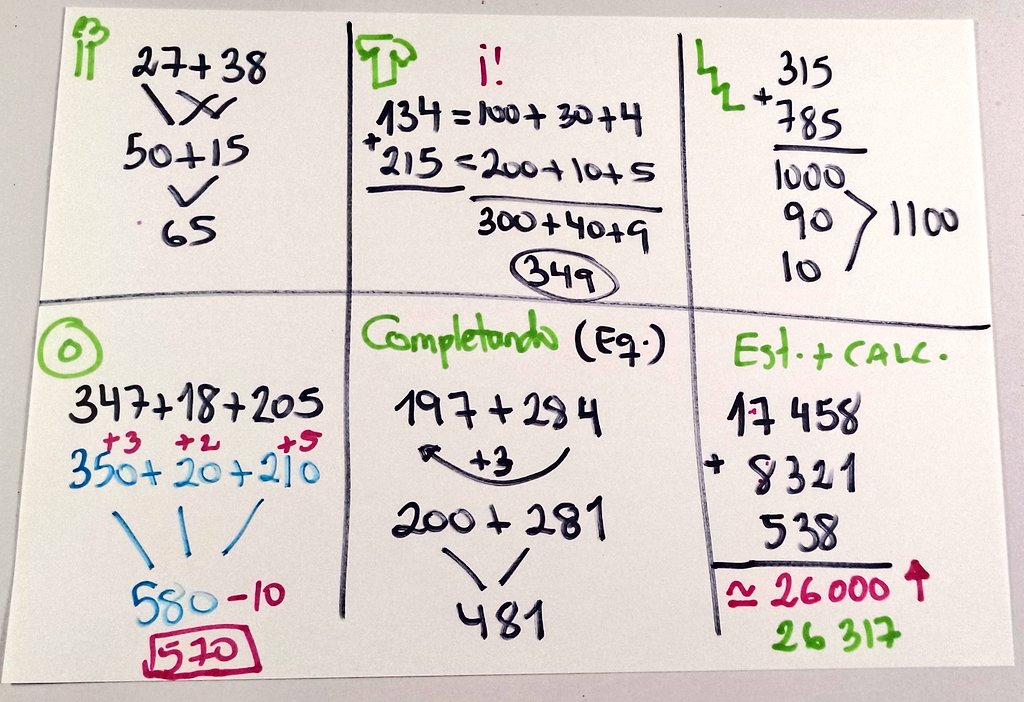 27+38
50+15
65
i!
134=100+30+4
+215=200+10+5
300+40+9
349
315
+785
1000
90
10
1100
0
347+18+205
+3 +2 +5
350+20+210
580-10
570
Completando (Eq.)
197+284
+3
200+281
481
Est.+CALC.
17 458
+ 8321
538
≃ 26000 ↑
26 317